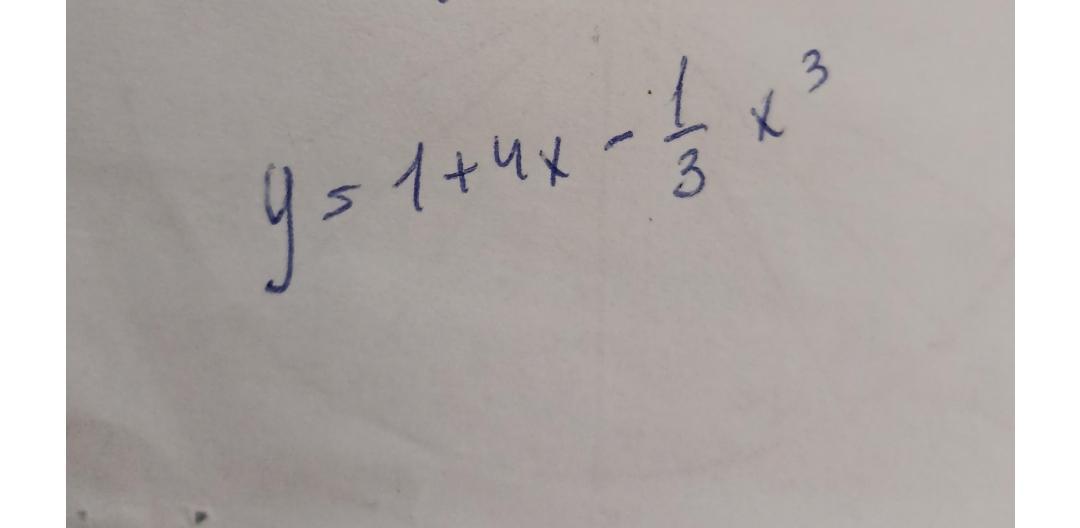 y = 1 + 4x - \frac{1}{3} x^3